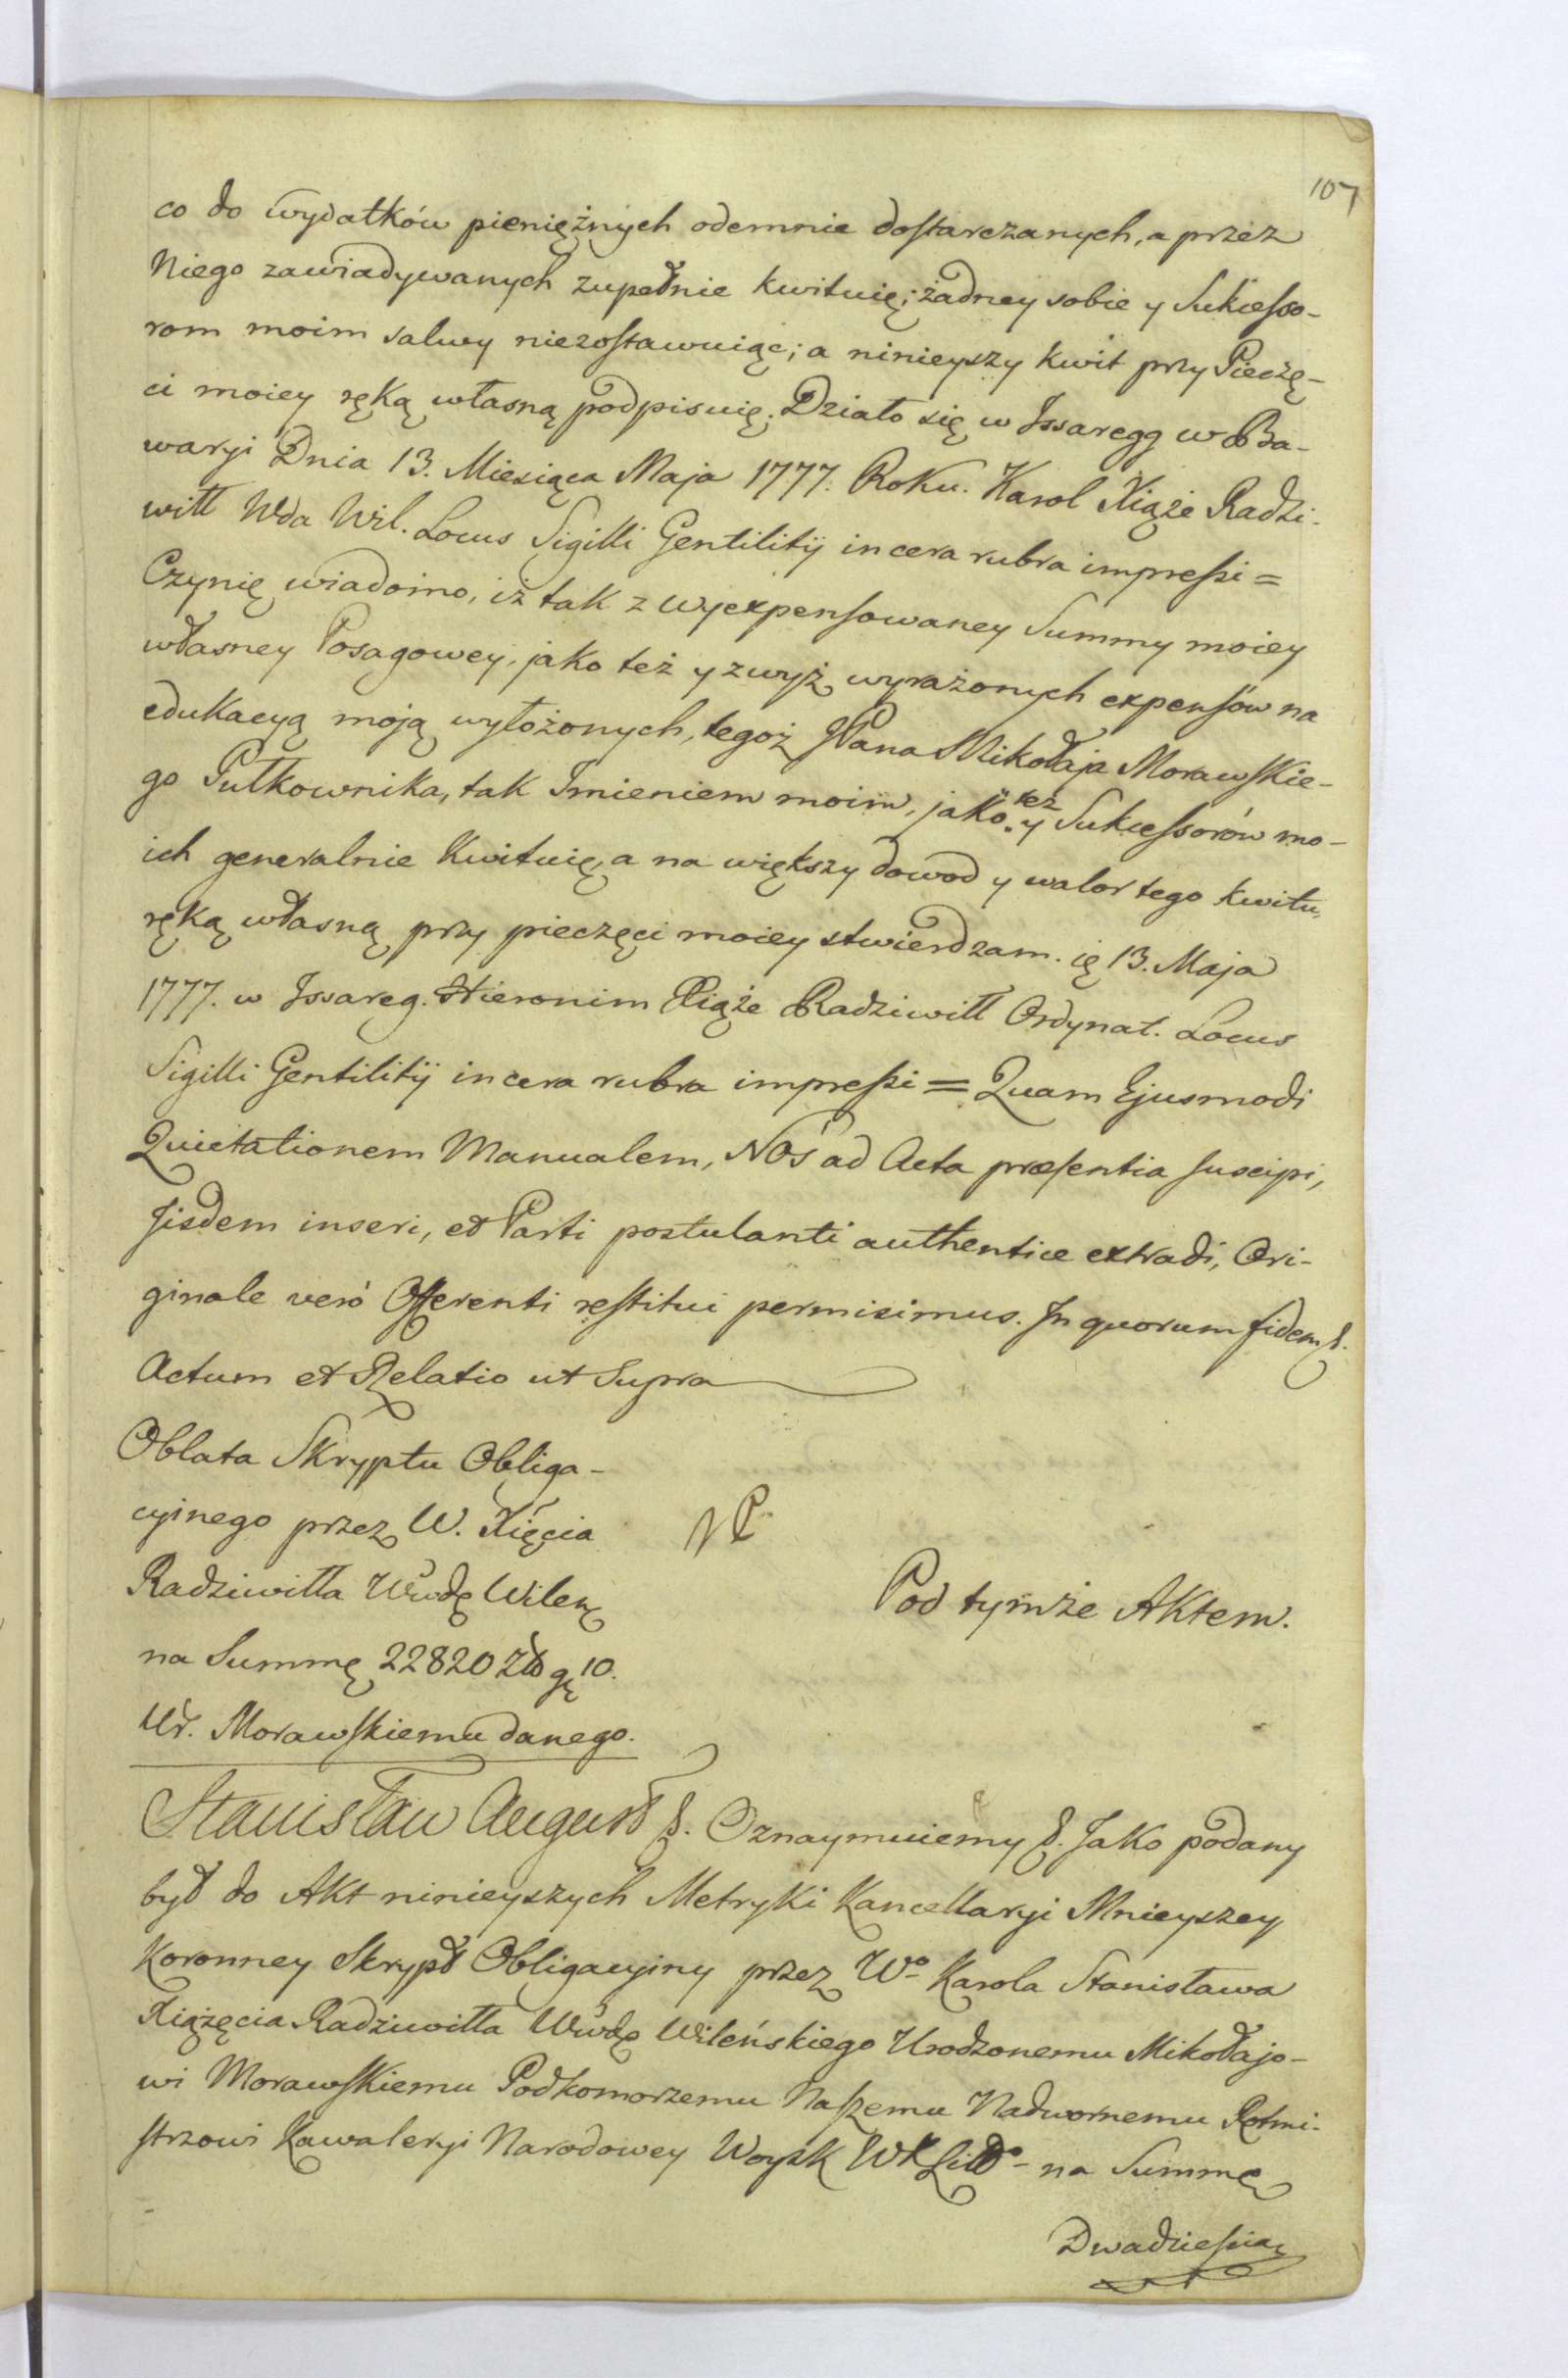 107
co do wydatków pieniężnych odemnie dostarczanych, a przez
Niego zawiadywanych zupełnie kwituię; żadney sobie y Sukcesso-
rom moim salwy niezostawuiąc; a ninieyszy kwit przy Pieczę-
ci moiey ręką własną podpisuię. Działo się w Issaregg w Ba-
waryi Dnia 13. Miesiąca Maja 1777. Roku. Karol Xiąże Radzi-
wiłł Wda Wil. Locus Sigilli Gentilitij in cera rubra impressi =
Czynię wiadomo, iż tak z wyexpensowaney Summy moiey
własney Posagowey, jako też y zwyż wyrażonych expensów na
edukacyą moją wyłożonych, tegoż JPana Mikołaja Morawskie-
go Pułkownika, tak Imieniem moim, jako też y Sukcessorów mo-
ich generalnie kwituię, a na większy dowod y walor tego kwitu,
ręką własną przy pieczęci moiey stwierdzam. ię 13. Maja
1777. w Issareg. Hieronim Xiąże Radziwiłł Ordynat. Locus
Sigilli Gentilitij in cera rubra impressi = Quam Ejusmodi
Quietationem Manualem, Nos ad Acta præsentia suscipi,
Jisdem inseri, et Parti postulanti authentice extradi, Ori-
ginale verò Offerenti restitui permisimus. In quorum fidem &.
Actum et Relatio ut Supra
Oblata Skryptu Obliga-
cyinego przez W. Xięcia
Radziwiłła Wwdę Wileń
na Summę 22820 Zł gę 10.
Ur. Morawskiemu danego.
Pod tymże Aktem.
Stanisław August &. Oznaymuiemy &. Jako podany
był do Akt ninieyszych Metryki Kancellaryi Mnieyszey
Koronney Skrypt Obligacyiny przez Wo Karola Stanisława
Xiążęcia Radziwiłła Wwdę Wileńskiego Urodzonemu Mikołajo-
wi Morawskiemu Podkomorzemu Naszemu Nadwornemu Rotmi-
strzowi Kawaleryi Narodowey Woysk WXLitto na Summę
Dwadzieścia